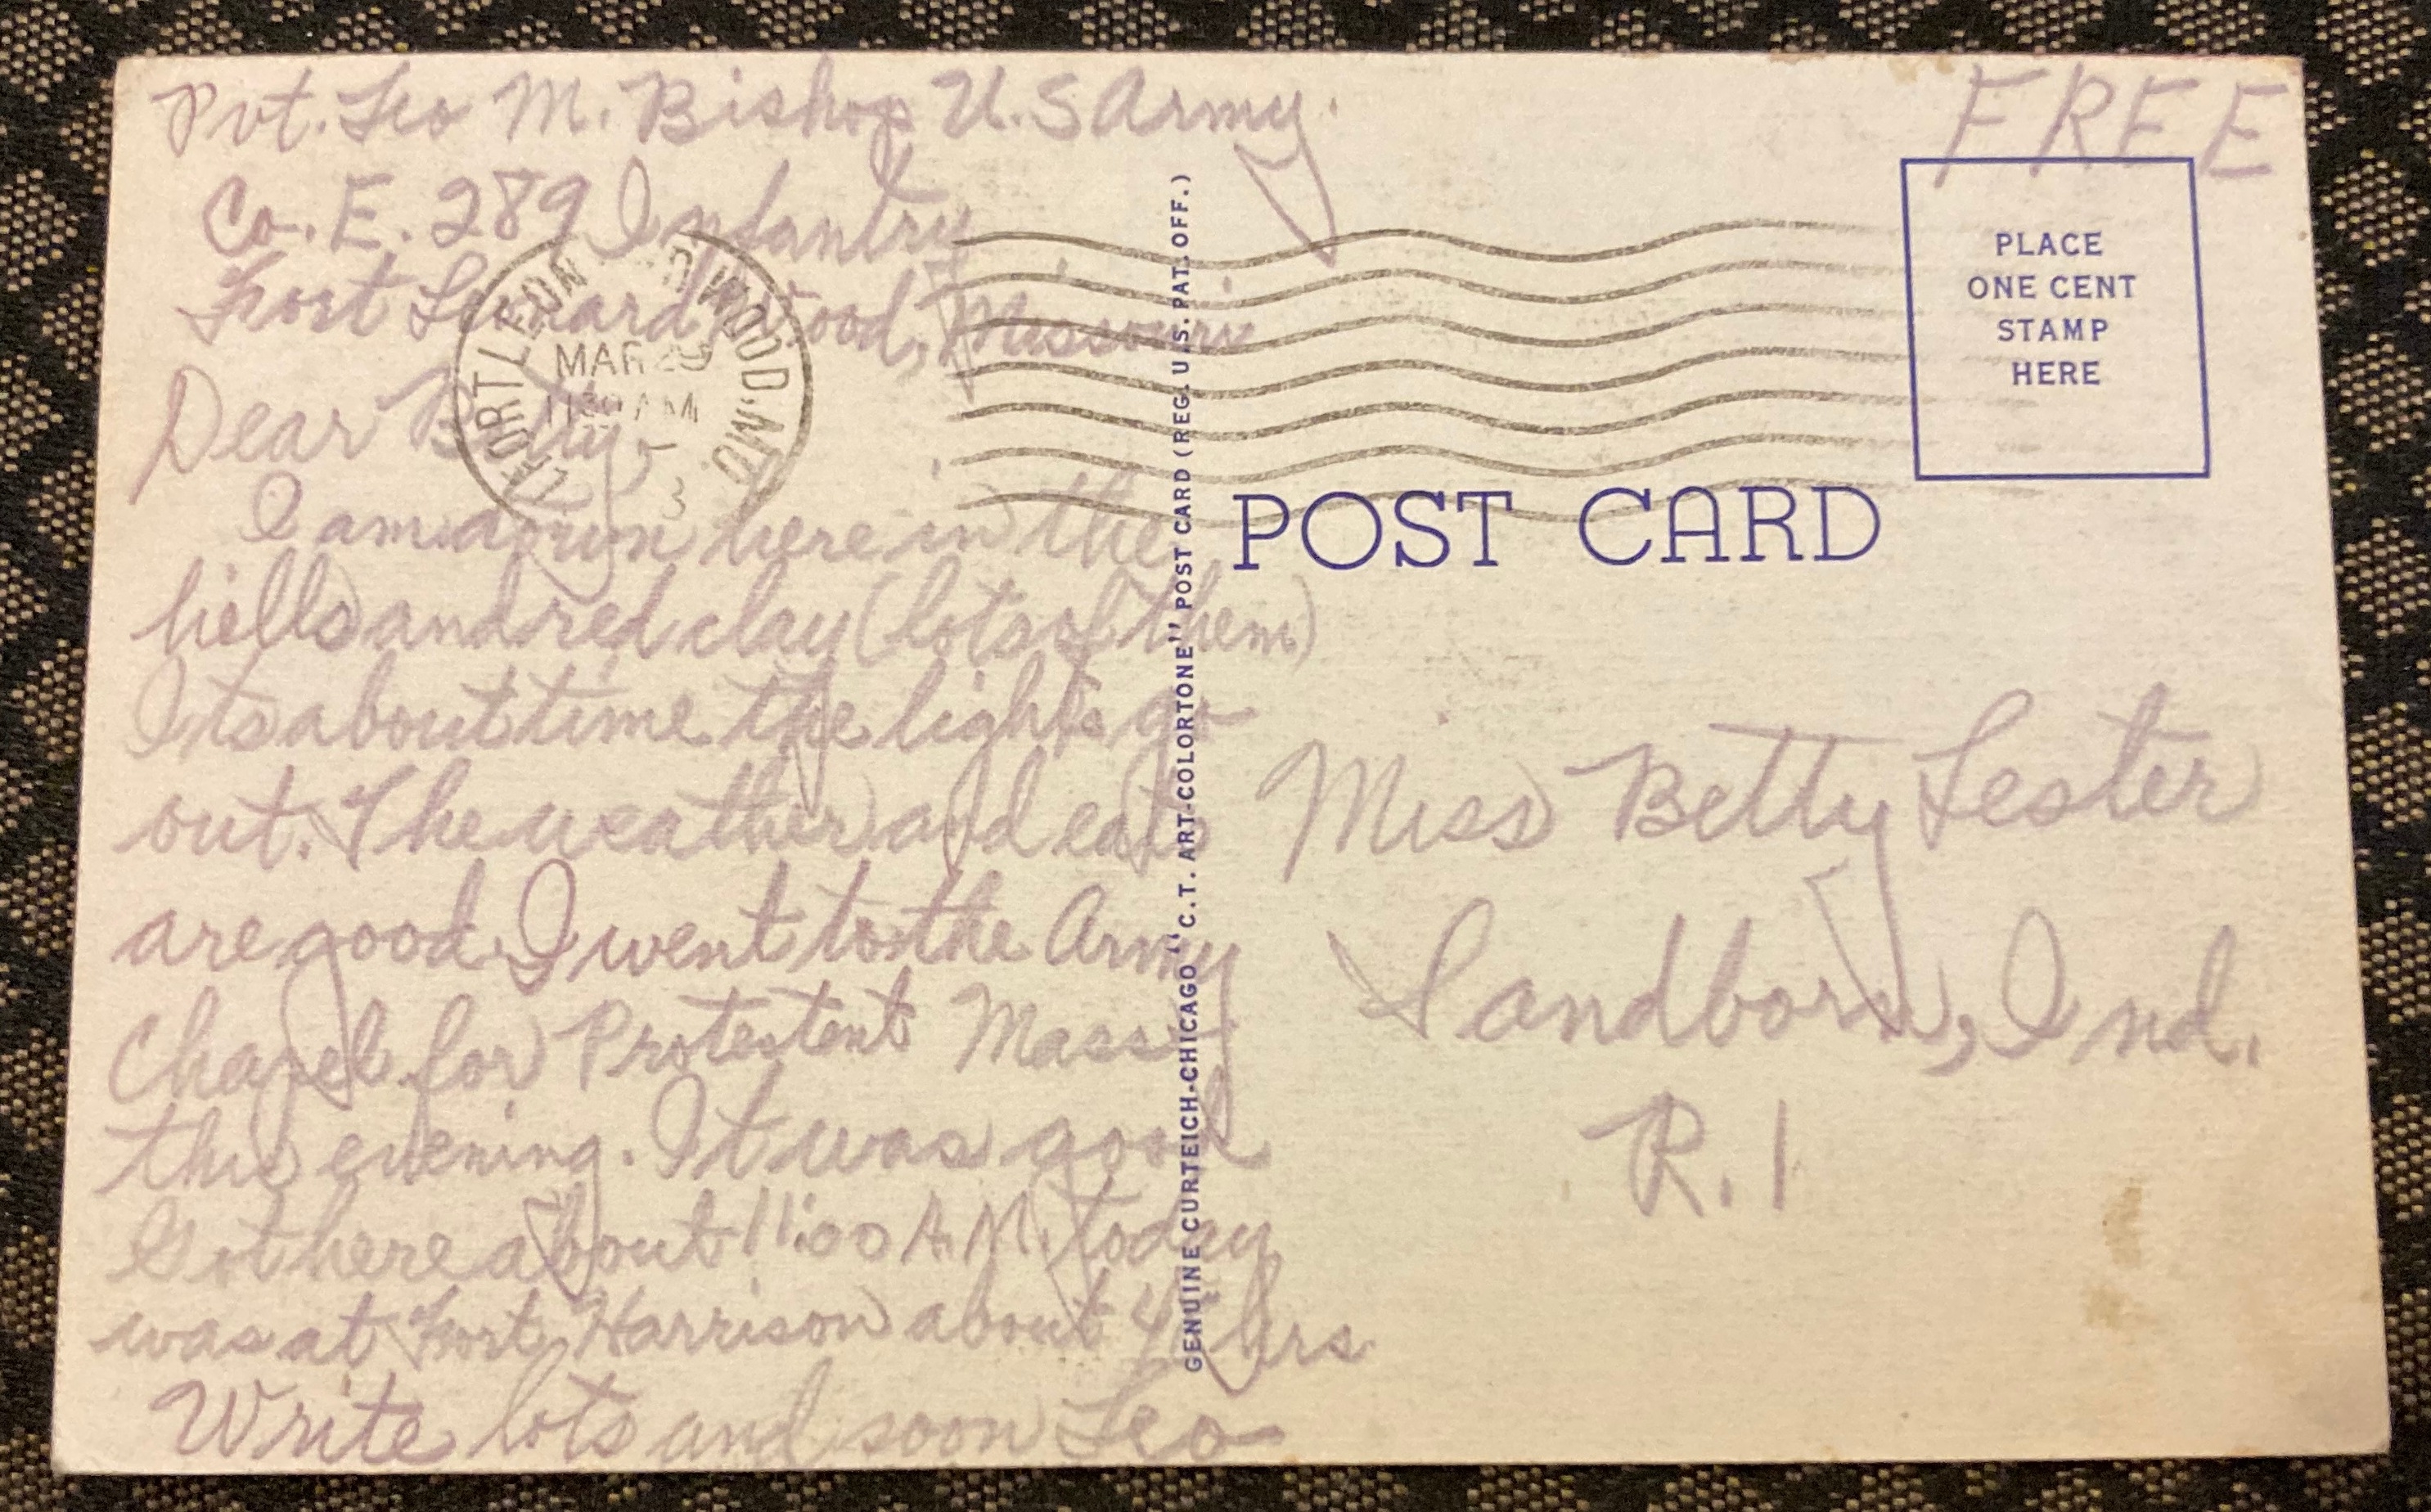 Pvt. Leo M. Bishop U.S Army.
Co. E. 289 Infantry
Fort Leonard Wood, Missouri
Dear Betty,
I am down here in the
hills and red clay (lots of them)
Its about time the lights go
out. The weather and eats
are good. I went to the Army
Chapel for Protestent Mass
this evening. It was good
Got here about 11:00 A.M. today
was at Fort Harrison about hrs
Write lots and soon Leo
FORT LEON D WOOD, MO.
MAR 29
1130 AM
FREE
PLACE
ONE CENT
STAMP
HERE
POST CARD
GENUINE CURTEICH-CHICAGO "C.T. ART-COLORTONE" POST CARD (REG. U.S. PAT. OFF.)
Miss Betty Lester
Sandborn, Ind.
R. 1